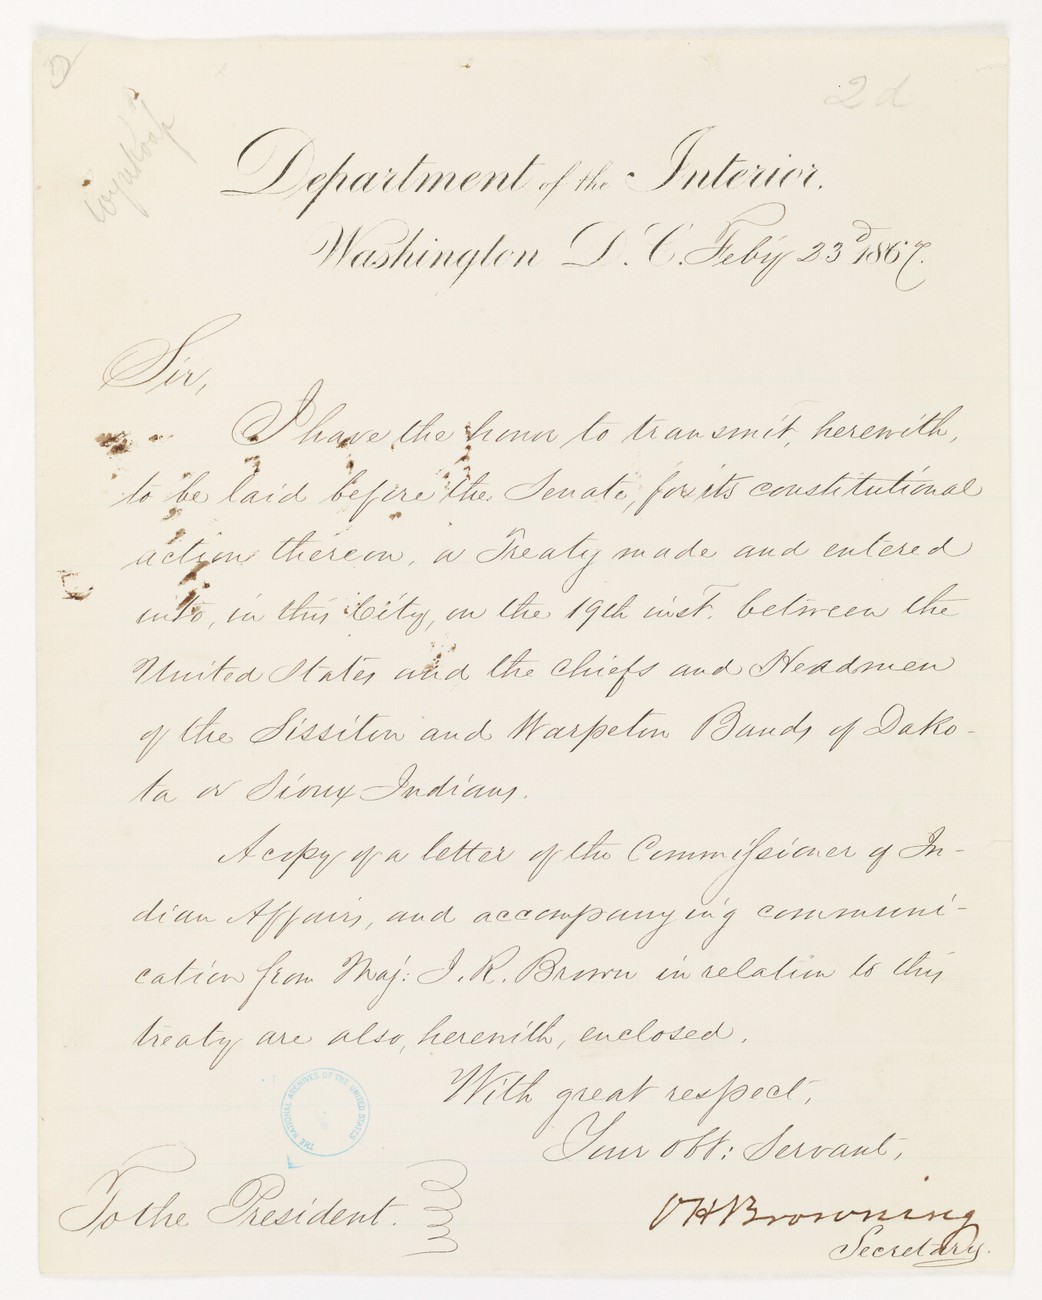 2d
Department of the Interior.
Washington D.C. Feb'y 23d 1867.
Sir,
I have the honor to transmit, herewith,
to be laid before the Senate, for its constitutional
action thereon, a Treaty made and entered
into, in this City, on the 19th inst. between the
United States and the chiefs and Headmen
of the Sissiton and Warpeton Bands of Dako-
ta or Sioux Indians.
A copy of a letter of the Commissioner of In-
dian Affairs, and accompanying communi-
cation from Maj: J. R. Brown in relation to this
treaty are also, herewith, enclosed.
With great respect,
Your Obt: Servant,
THE NATIONAL ARCHIVES OF THE UNITED STATES
To the President.
O H Browning
Secretary.